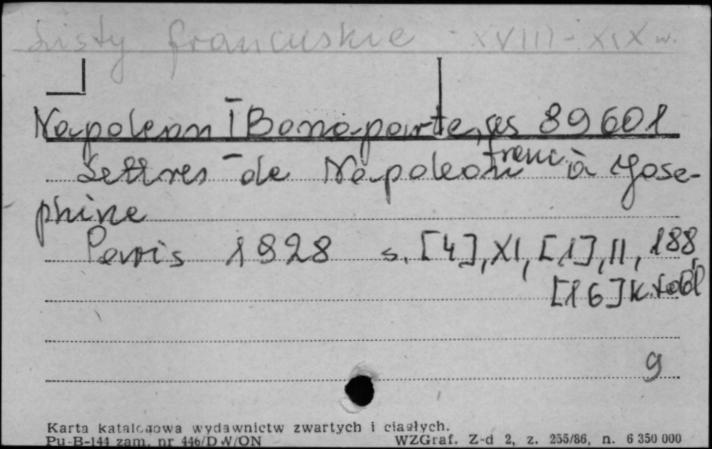 Listy francuskie XVIII-XIX w.
Napoleon I Bonaparte, ces 89601
franc.
Lettres de Napoleon à Jose-
phine
Paris 1828 s. [4], XI, [1], II, 188,
[16] k.tabl
9
Karta katalogowa wydawnictw zwartych i ciągłych.
Pu-B-144 zam. nr 446/D.W/ON WZGraf. Z-d 2, z. 255/86, n. 6 350 000